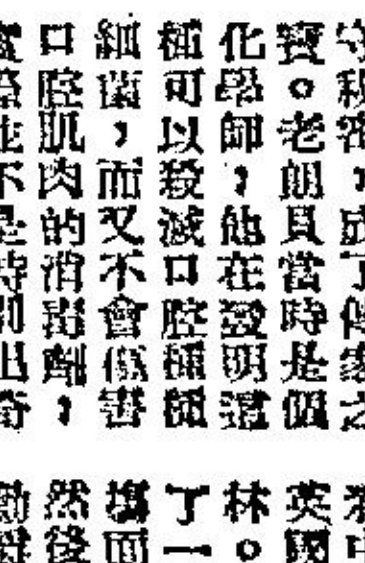 守秘密,成了傳家之
寶。老朗貝當時是個
化學師,他在發明這
種可以殺滅口腔種種
細菌,而又不會傷害
口腔肌肉的消毒劑,
不是特別出奇
英國
林。
了一
塲面
然後